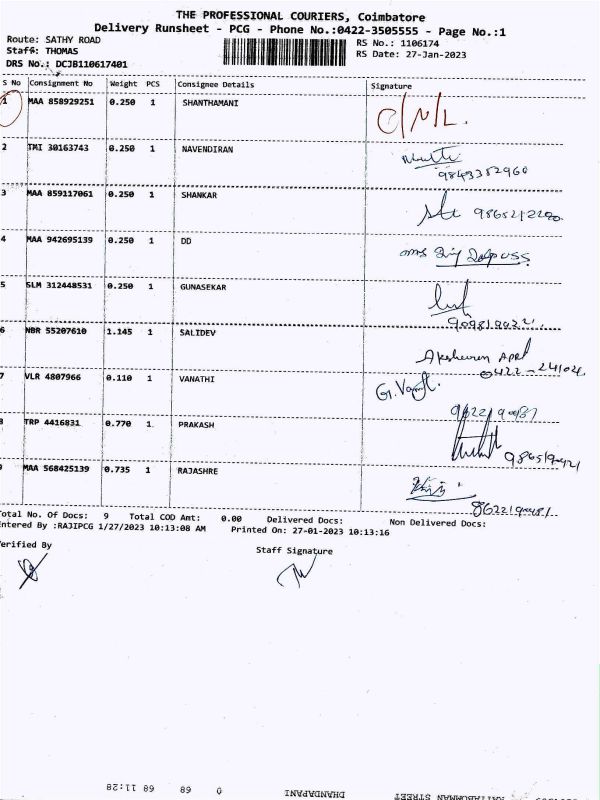 THE PROFESSIONAL COURIERS, Coimbatore
Delivery Runsheet - PCG - Phone No.:0422-3505555 - Page No.:1
Route: SATHY ROAD
RS No.: 1106174
Staff: THOMAS
RS Date: 27-Jan-2023
DRS No.: DCJB110617401
S No Consignment No Weight PCS Consignee Details Signature
1 MAA 858929251 0.250 1 SHANTHAMANI C/N/L.
2 TMI 30163743 0.250 1 NAVENDIRAN
9843352960
3 MAA 859117061 0.250 1 SHANKAR
4 MAA 942695139 0.250 1 DD
5 SLM 312448531 0.250 1 GUNASEKAR
6 NBR 55207610 1.145 1 SALIDEV
0422-24104
7 VLR 4807966 0.110 1 VANATHI
8 TRP 4416831 0.770 1 PRAKASH
9 MAA 568425139 0.735 1 RAJASHRE
Total No. Of Docs: 9 Total COD Amt: 0.00 Delivered Docs: Non Delivered Docs:
Entered By :RAJIPCG 1/27/2023 10:13:08 AM Printed On: 27-01-2023 10:13:16
Verified By
Staff Signature
DHANDAPANI 0 89 68 11:28